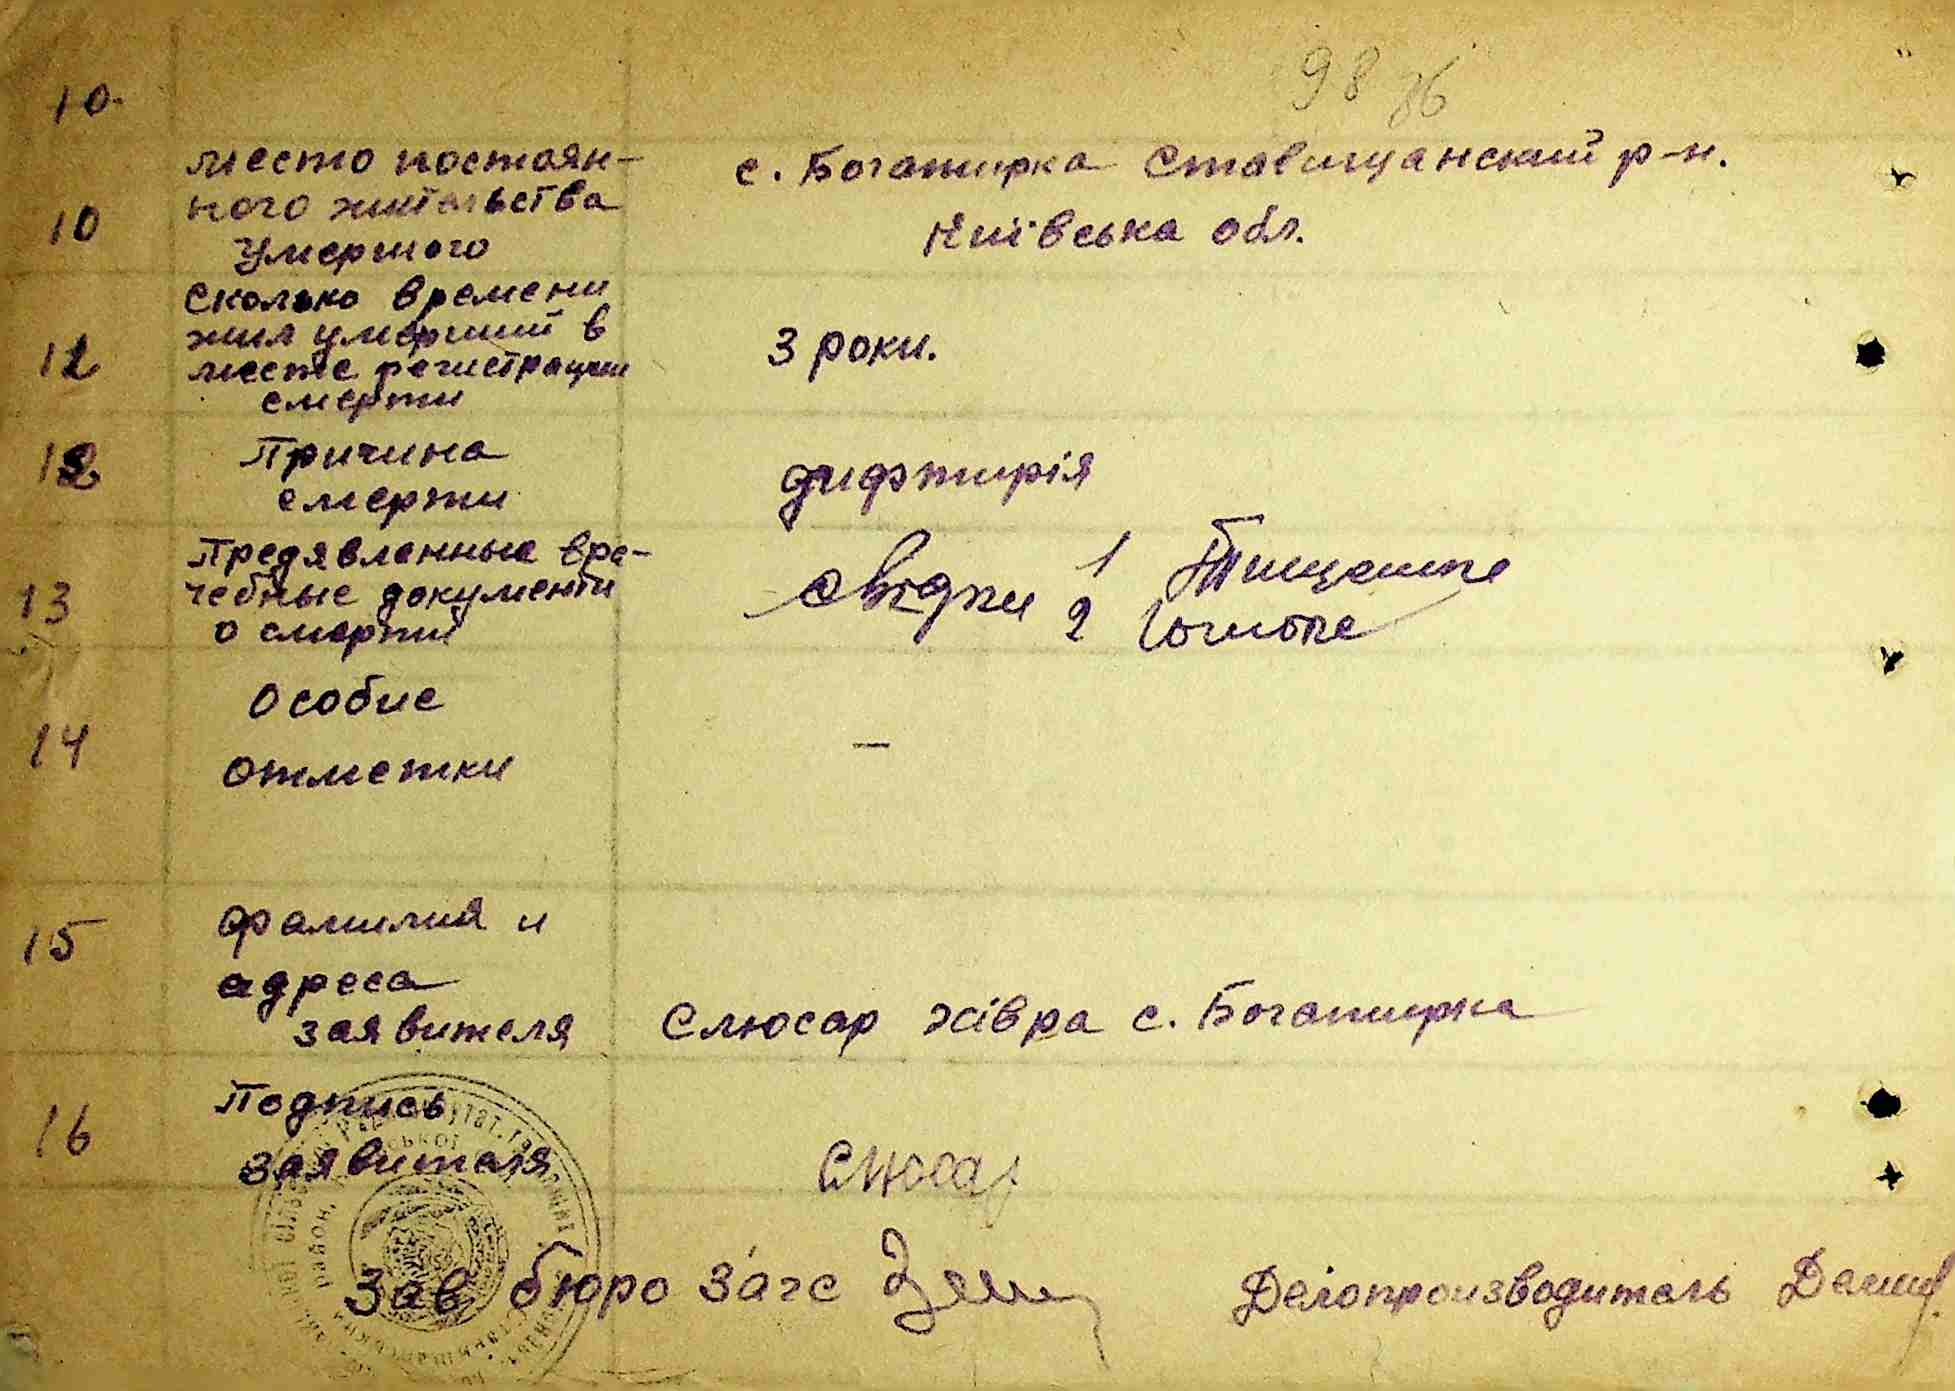 98
10.
10
место постоян-
ного жительства
умершого
с. Богатирка Ставищанский р-н.
Київська обл.
12
Сколько времени
жил умерший в
месте регистрации
смерти
3 роки.
12
Причина
смерти
дифтирія
13
Предявленные вра-
чебные документи
о смерти
свідки 1
2
14
Особие
отметки
—
15
фамилия и
адреса
заявителя
Слюсар Хівра с. Богатирка
16
Подпись
заявителя
Слюсар
Зав бюро Загс
Делопроизводитель